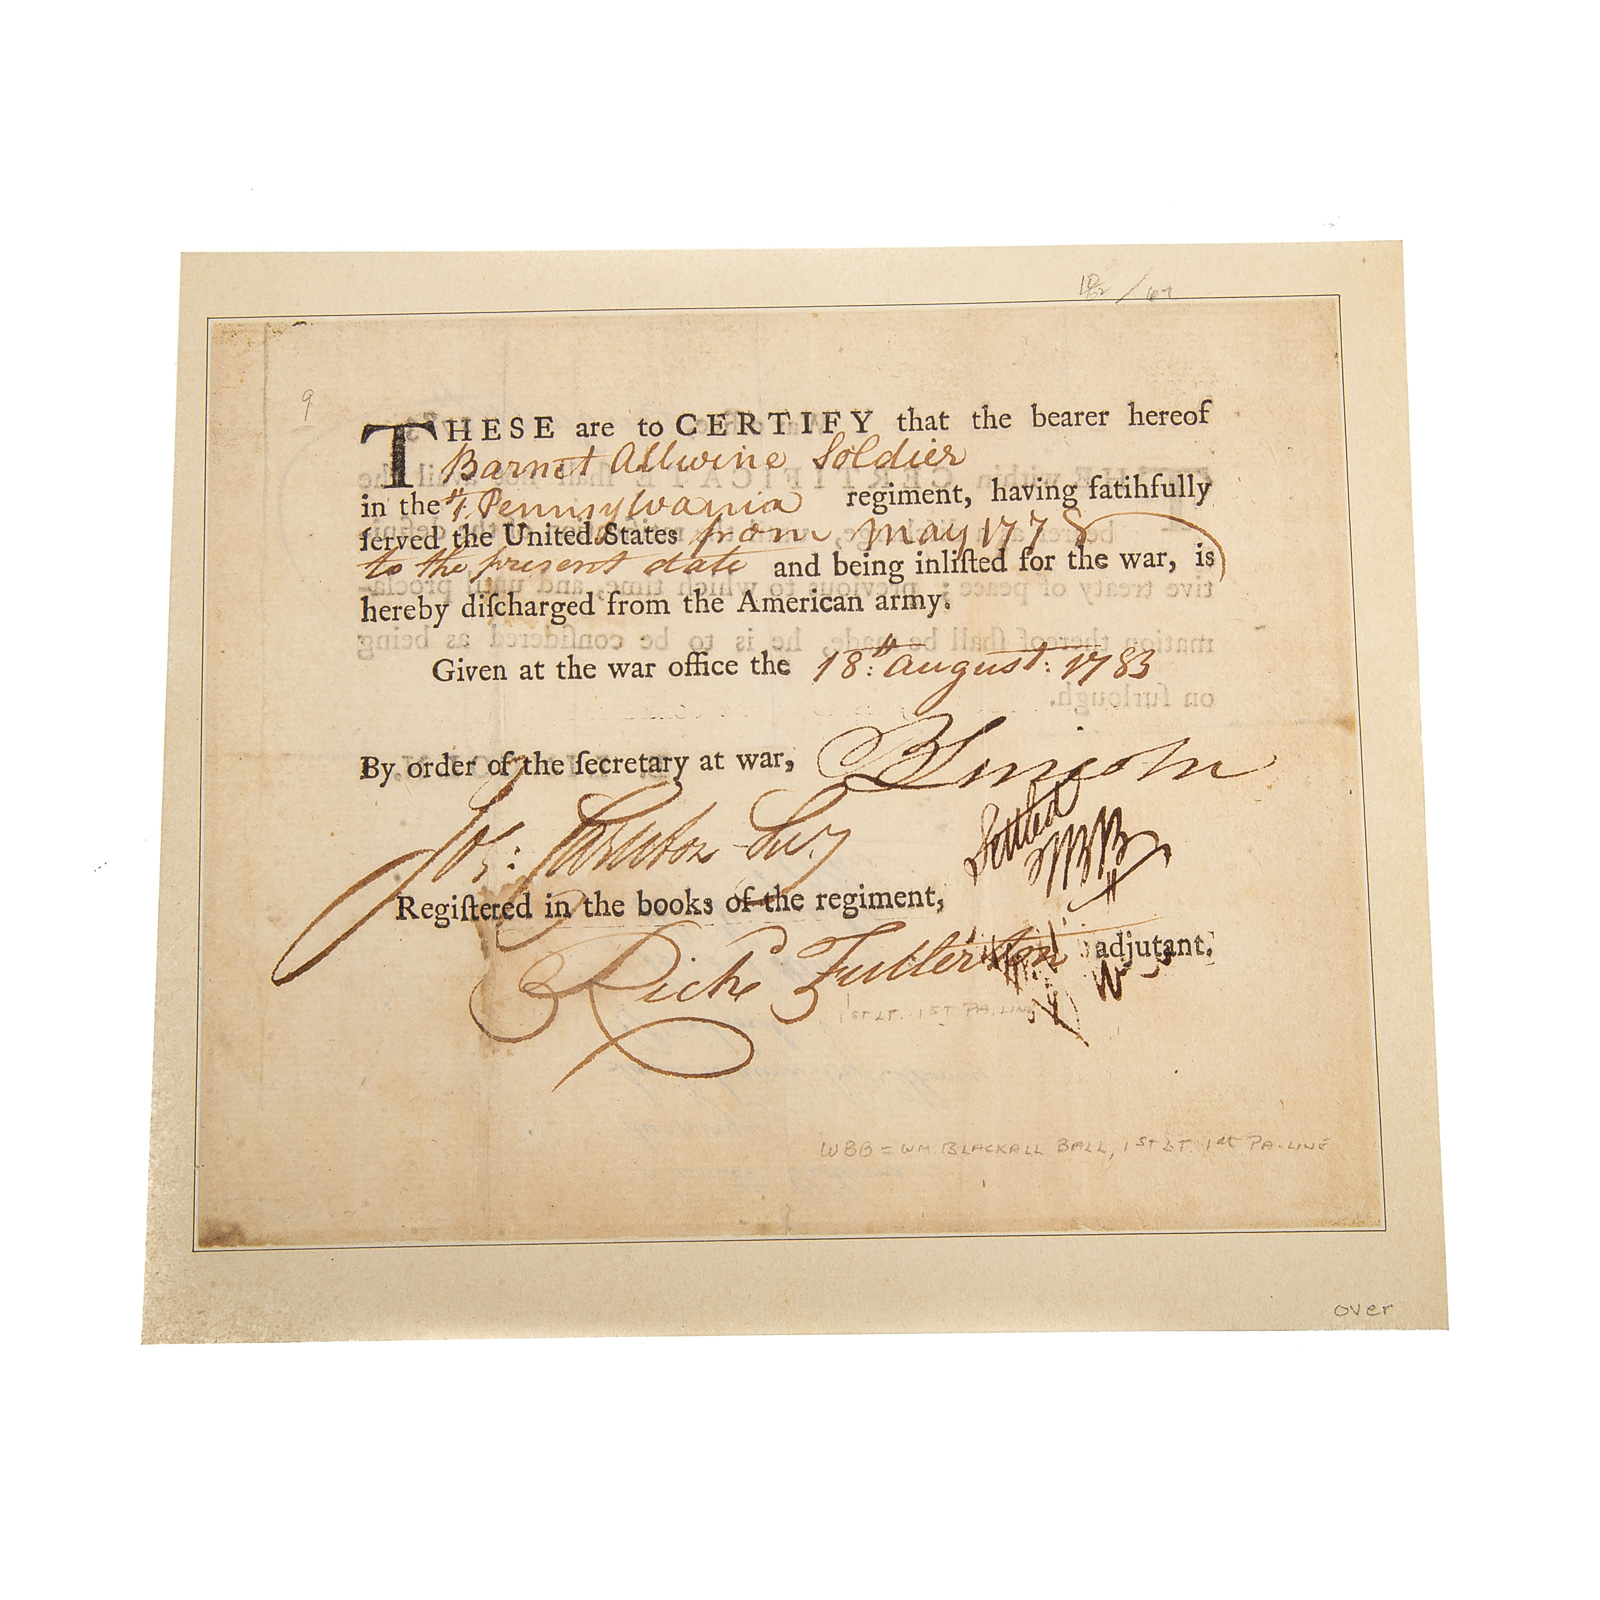 9
THESE are to CERTIFY that the bearer hereof
Barnet Allwine Soldier
in the Pennsylvania regiment, having fatihfully
ſerved the United States from may 1778
to the present date and being inliſted for the war, is
hereby diſcharged from the American army.
Given at the war office the 18:th august: 1783
By order of the ſecretary at war, B Lincoln
Jos: Carleton Secy
Settled
WBB
Regiſtered in the books of the regiment,
Richd Fullerton adjutant.
1ST LT. 1ST PA. LINE
WBB = WM BLACKALL BALL, 1ST LT. 1st PA. LINE
over